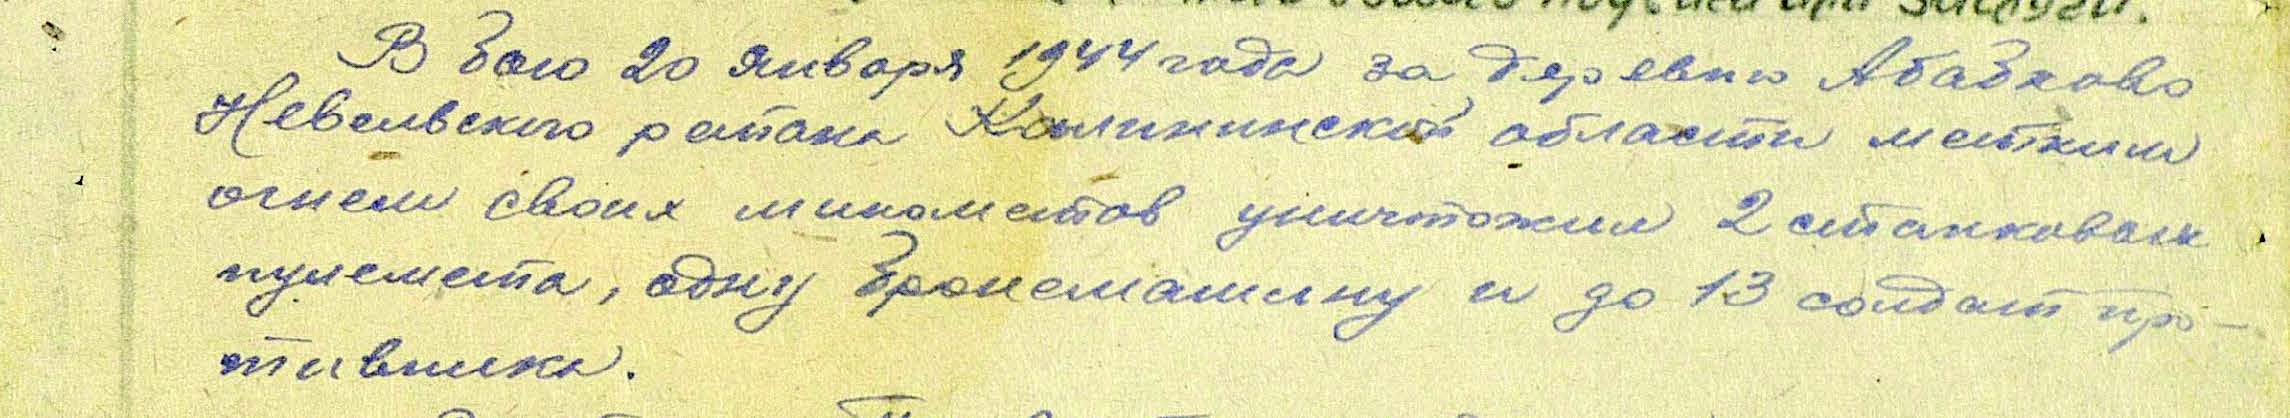 заслуги.
В бою 20 января 1944 года за деревню Абабково
Невельского района Калининской области метким
огнем своих минометов уничтожил 2 станковых
пулемета, одну бронемашину и до 13 солдат про-
тивника.